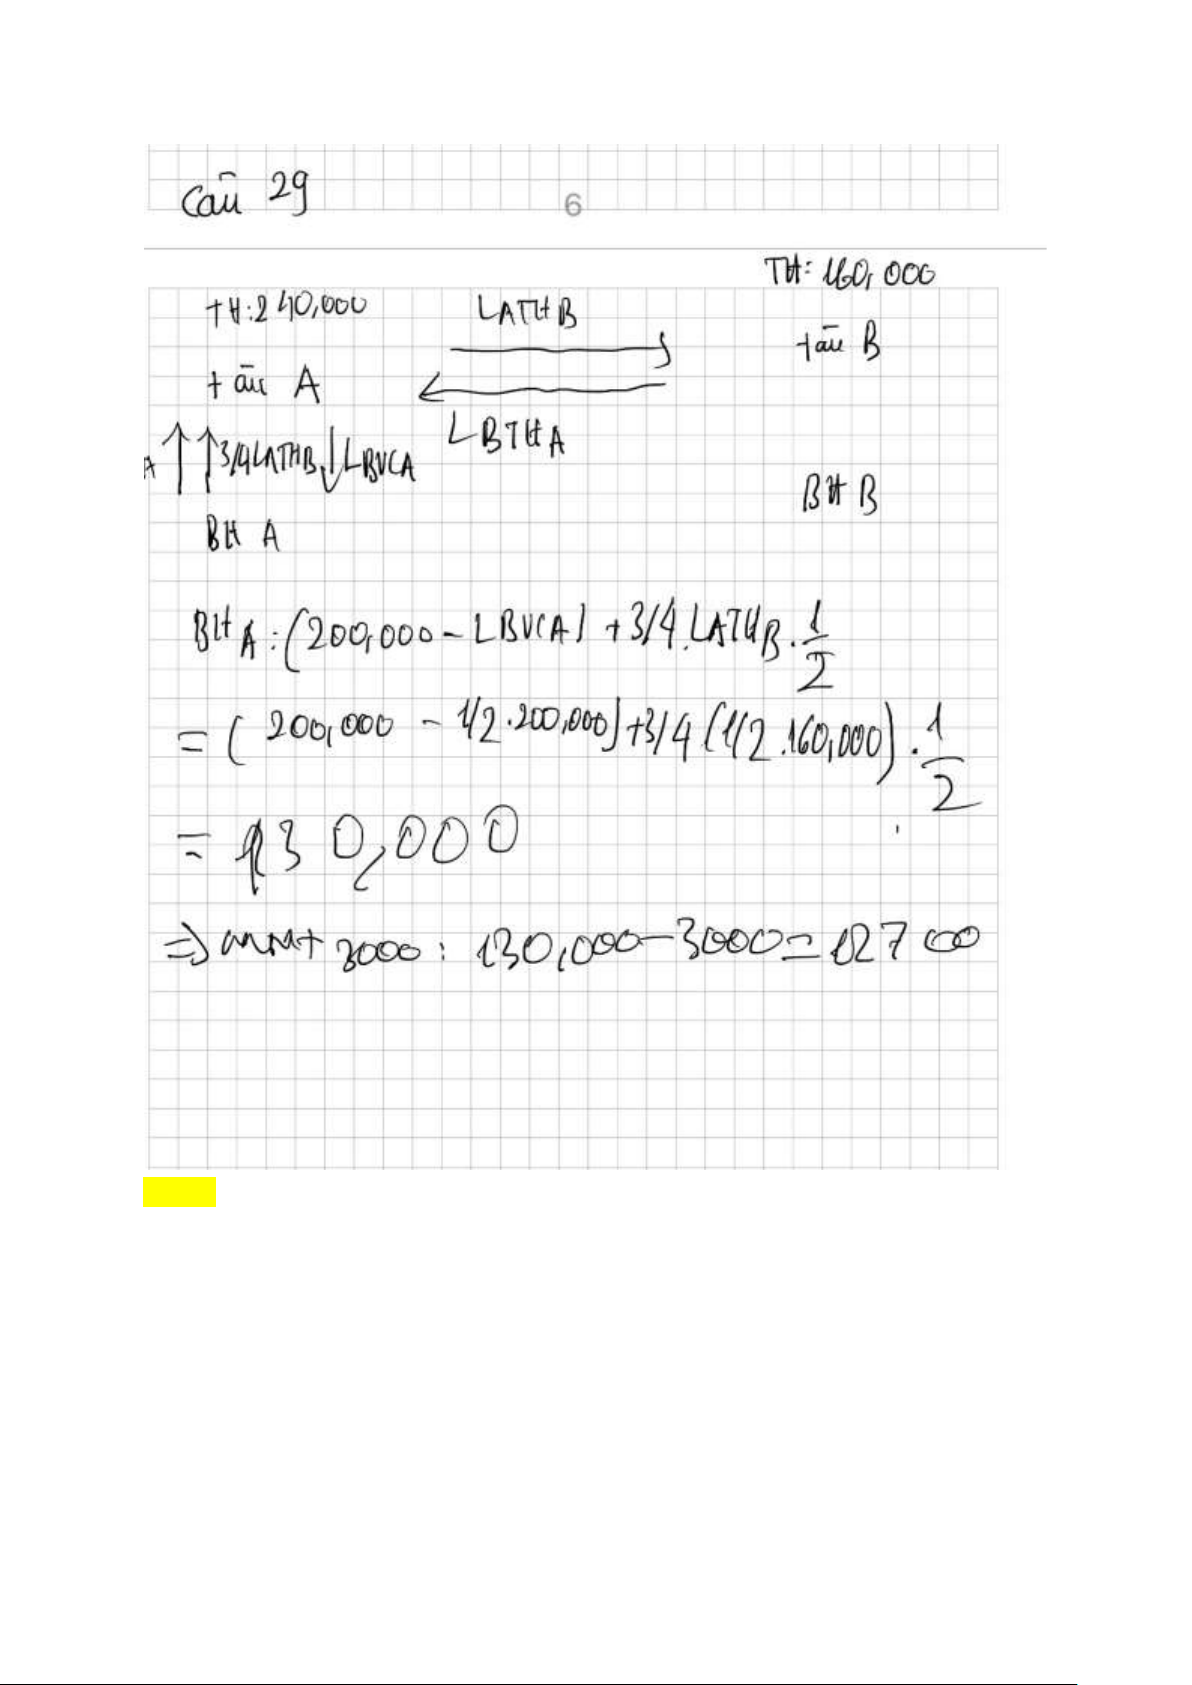 Câu 29
6
TH: 160,000
TH: 240,000
LATHB
tàu B
tàu A
LBTHA
A
3/4 LATHB
LBVCA
BH B
BH A
BH A: (200,000 - LBVCA) + 3/4.LATHB.1/2
= (200,000 - 1/2.200,000) + 3/4 (1/2.160,000).1/2
= 130,000
=> 3000: 130,000 - 3000 = 127 000